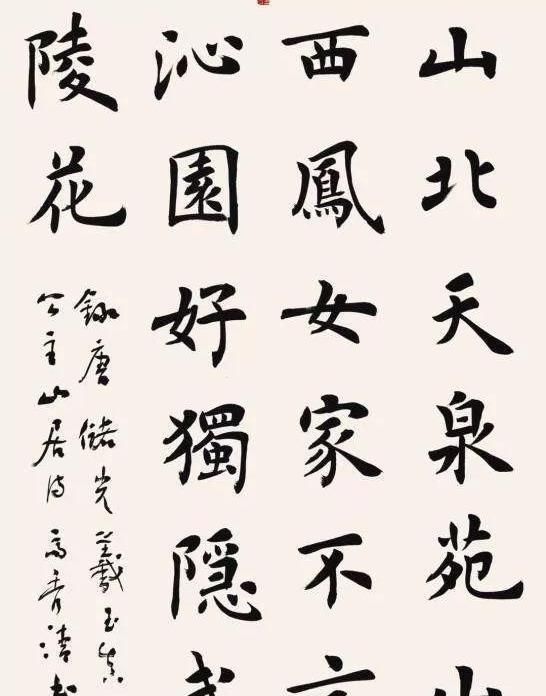 山北天泉苑山
西鳳女家不言
沁園好獨隐武
陵花
錄唐儲光羲玉真
公主山居诗 高清书